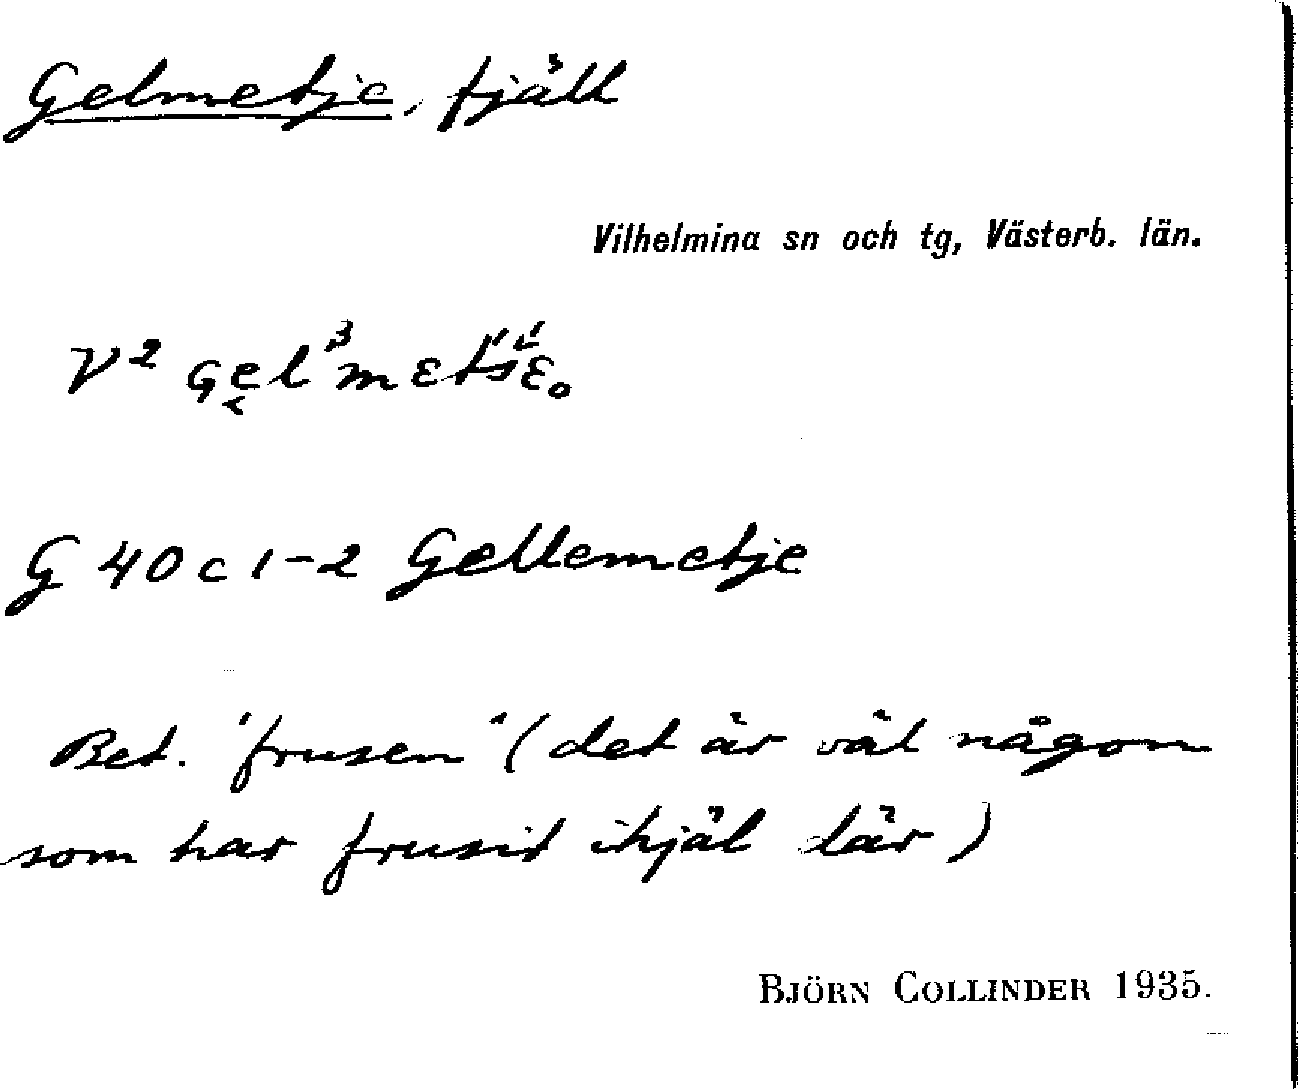 Gelmetje, fjäll
Vilhelmina sn och tg, Västerb. län.
V²
G 40 c 1-2 Gellemetje
Bet. "frusen" (det är väl någon
som har frusit ihjäl där)
BJÖRN COLLINDER 1935.